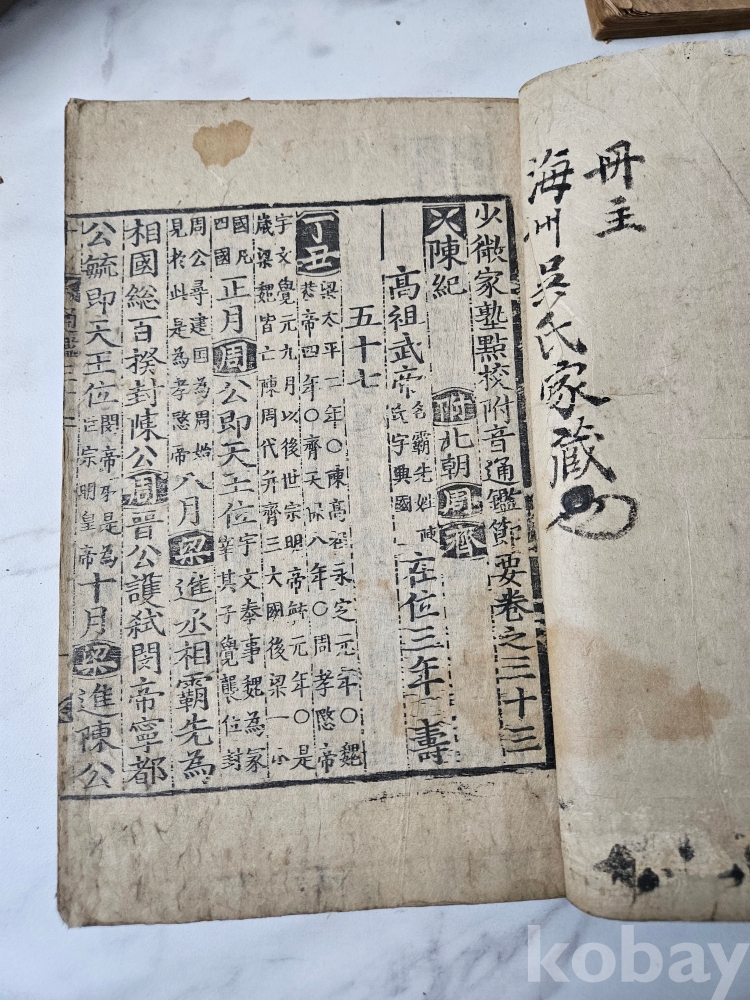 冊主
海州吳氏家藏
少微家塾點校附音通鑑節要卷之三十三
陳紀 附 北朝 周 齊
高祖武帝 名霸先姓陳氏字興國 在位三年 壽
五十七
丁丑 梁太平二年〇陳高祖永定元年〇魏恭帝四年〇齊天保八年〇周孝愍帝
宇文覺元九月以後世宗明帝毓元年〇是歲梁魏皆亡陳周代幷齊三大國後梁一小
國凡四國 正月 周 公即天王位 宇文泰事魏為冢宰其子覺襲位封
周公尋建国為周始見於此是為孝愍帝 八月 梁 進丞相霸先為
相國総百揆封陳公 周 晉公護弑閔帝寧都
公毓即天王位 閔帝兄是為世宗明皇帝 十月 梁 進陳公
通鑑三十
kobay